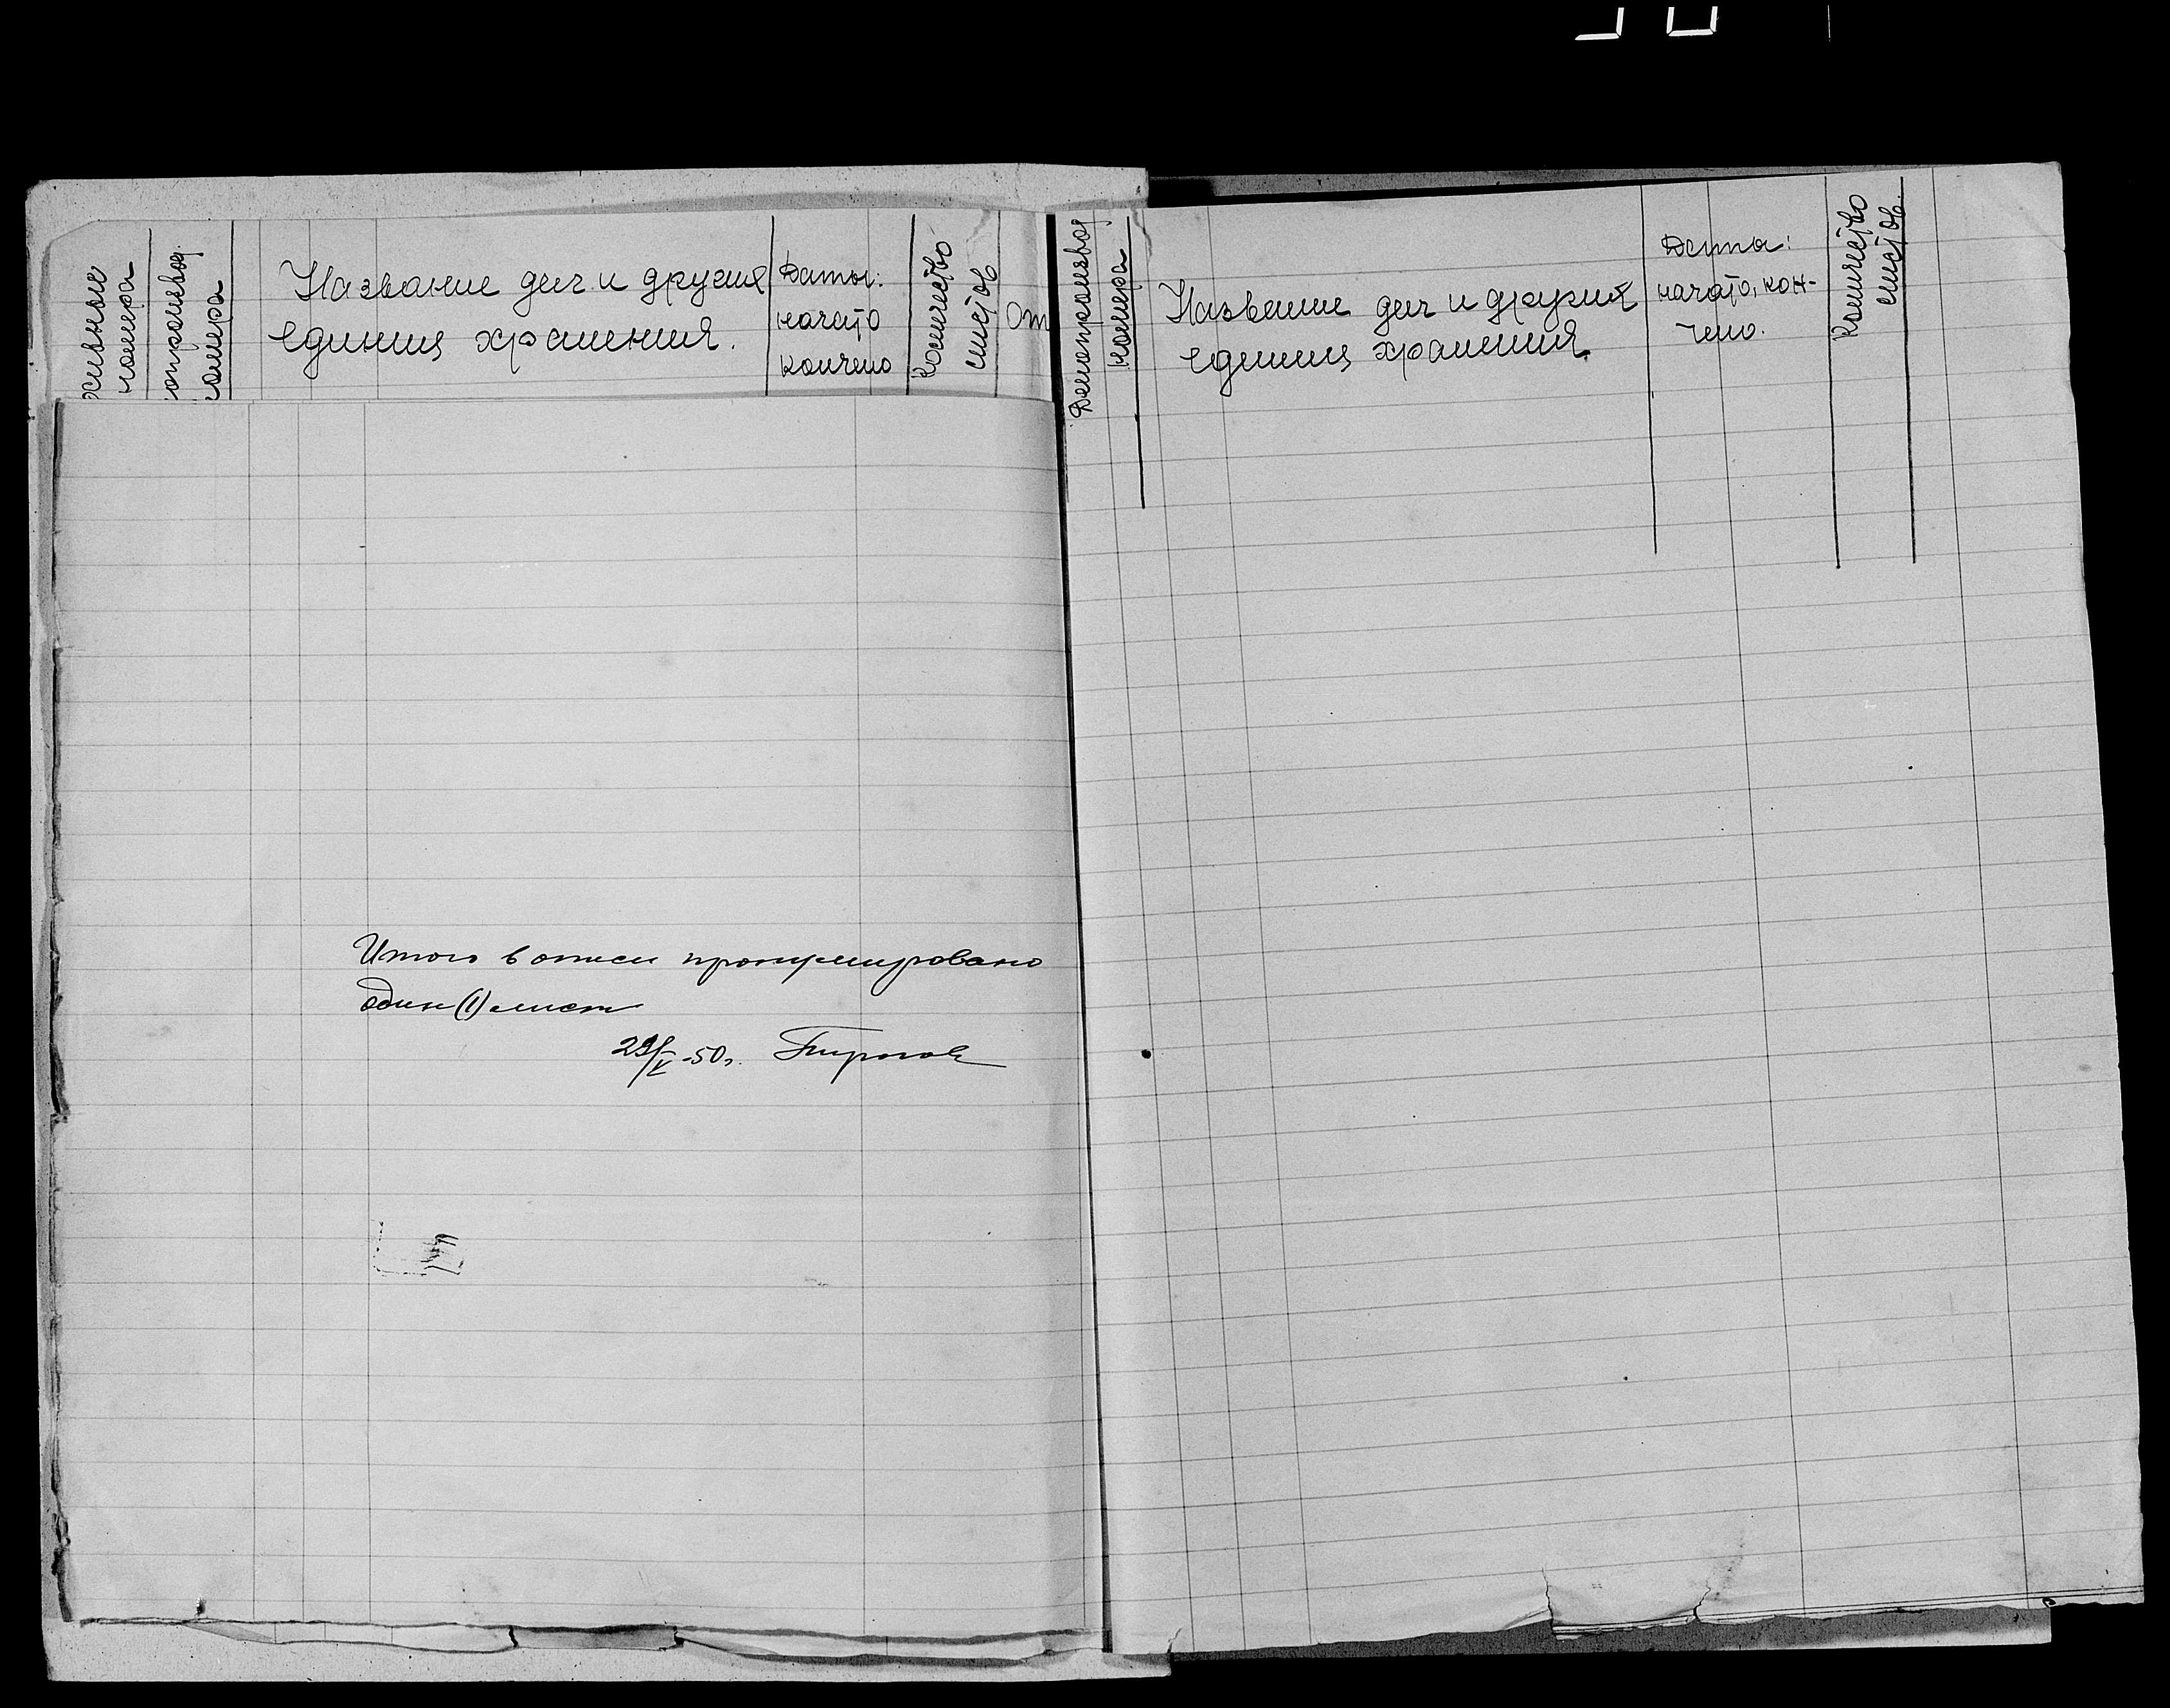 хивные
номера
опроизвод.
омера
Название дел и других
единиц хранения.
Даты:
начато
кончено
Количество
листов
От
Делопроизвод
номера
Название дел и других
единиц хранения.
Дата:
начато, кон-
чено.
Количество
листов.
Итого в описи пронумеровано
один (1) лист
29/V-50г.